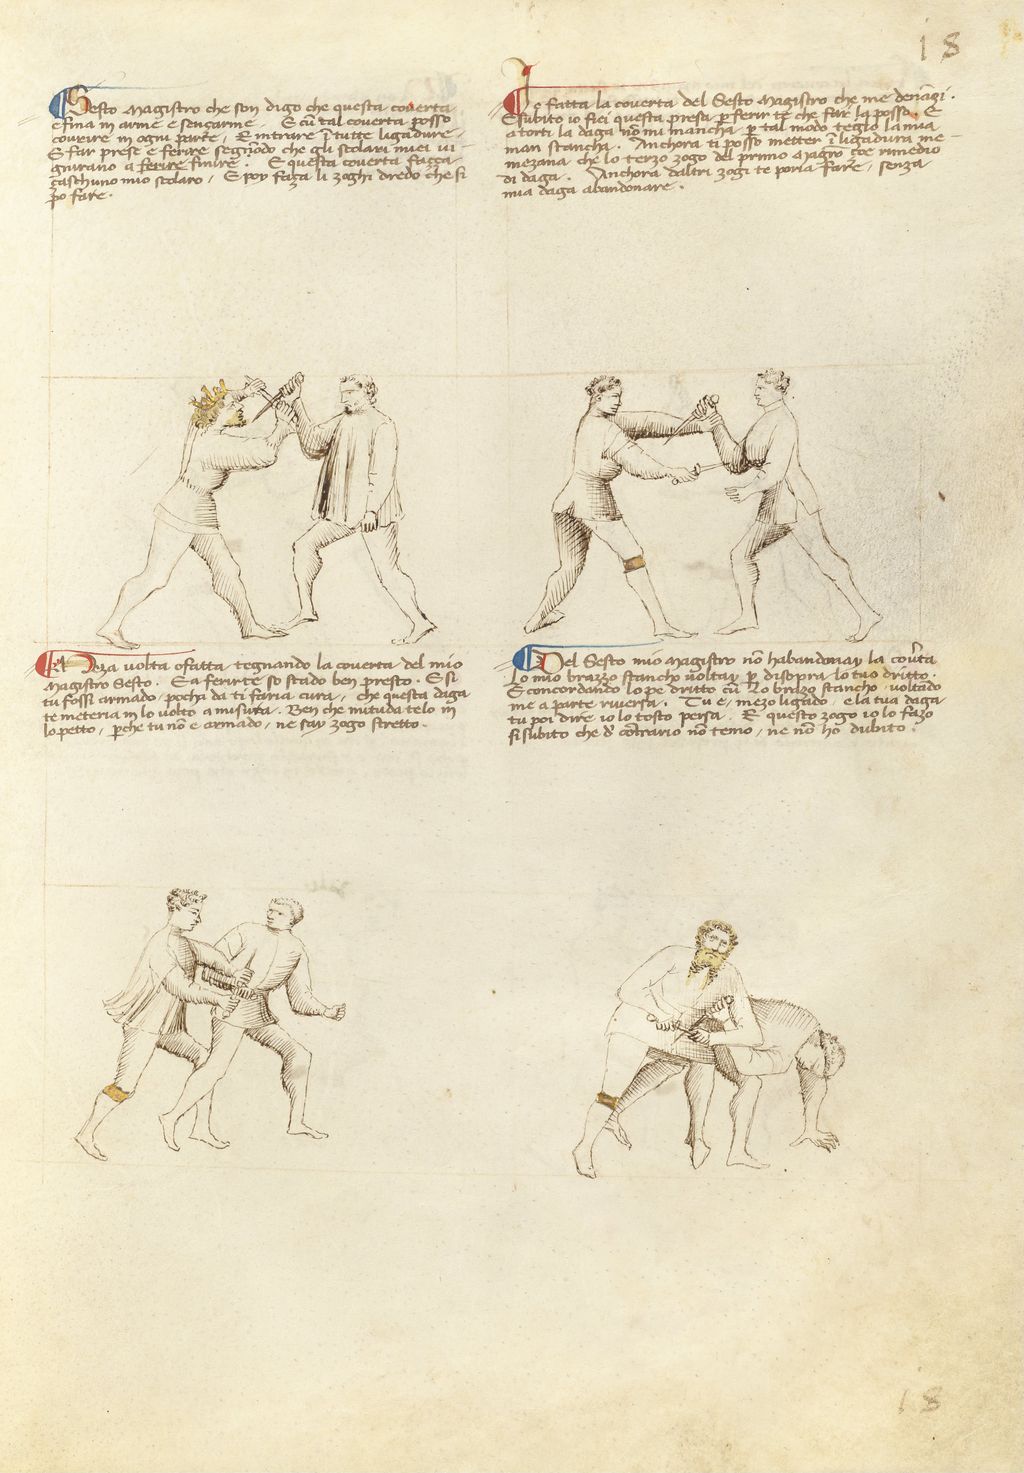 18
Sesto Magistro che son digo che questa coverta
e fina in arme e sença arme. E cũ tal coverta posso
covrire in ogni parte, E intrare ĩ tutte ligadure,
E far prese e ferire segñodo che gli scolari miei vi-
gnirano a ferire finire. E questa coverta façça
çaschuno mio scolaro, E poy faza li zoghi dredo che si
po fare.
Io fatta la coverta del Sesto Magistro che me denãçi.
E subito io fiei questa presa per ferir te che far la posso. E
a torti la daga nõ mi mancha. per tal modo tegño la mia
man stancha. Anchora ti posso metter ĩ ligadura me-
zana che lo terzo zogo del primo Magrõ çoe rimedio
di daga. Anchora daltri zogi te poria fare, senza
mia daga abandonare.
Meza volta o fatta tegnando la coverta del mio
Magistro Sesto. E a ferirte so stado ben presto. E si
tu fossi armado, pocha da ti faria cura, che questa daga
te meteria in lo volto a misura. Ben che mituda te lo in
lo petto, perche tu non e armado, ne say zogo stretto.
Del Sesto mio Magistro nõ habandonay la covta
Lo mio brazzo stancho voltay per disopra lo tuo dritto.
E concordando lo pe dritto cũ lo brazo stancho, voltado
me a parte riversa. Tu e, mezo ligado, e la tua daga
tu poi dire io lo tosto persa. E questo zogo io lo fazo
si subito che d' cõtrario nõ temo, ne nõ ho dubito.
18